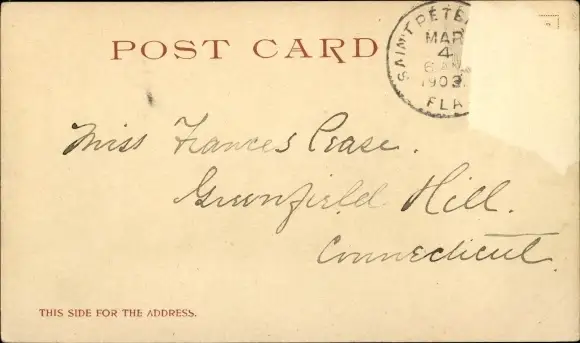 POST CARD
SAINT PETE
MAR
4
6 AM
1903.
FLA
Miss Frances Pease.
Greenfield Hill.
Connecticut.
THIS SIDE FOR THE ADDRESS.